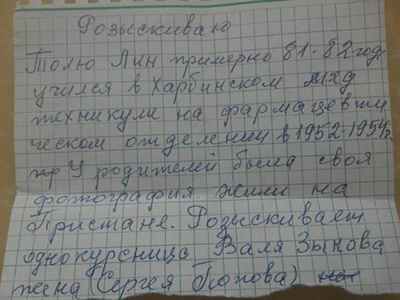 Розыскиваю
Толю Лин примерно 81-82 год
учился в Харбинском мжд
техникуме на фармацевти
ческом отделении в 1952-1954г
У родителей была своя
фотография жили на
Пристане. Розыскивает
однокурсница Валя Зыкова
жена (Сергея Попова)